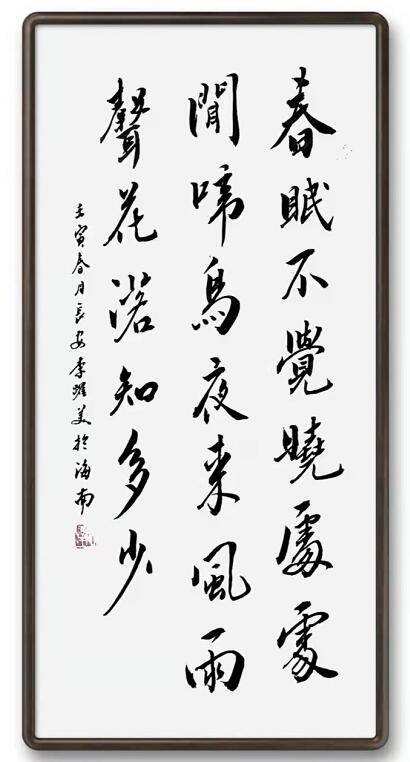 春眠不覺曉處處
聞啼鳥夜來風雨
聲花落知多少
壬寅春月長安李耀美於海南